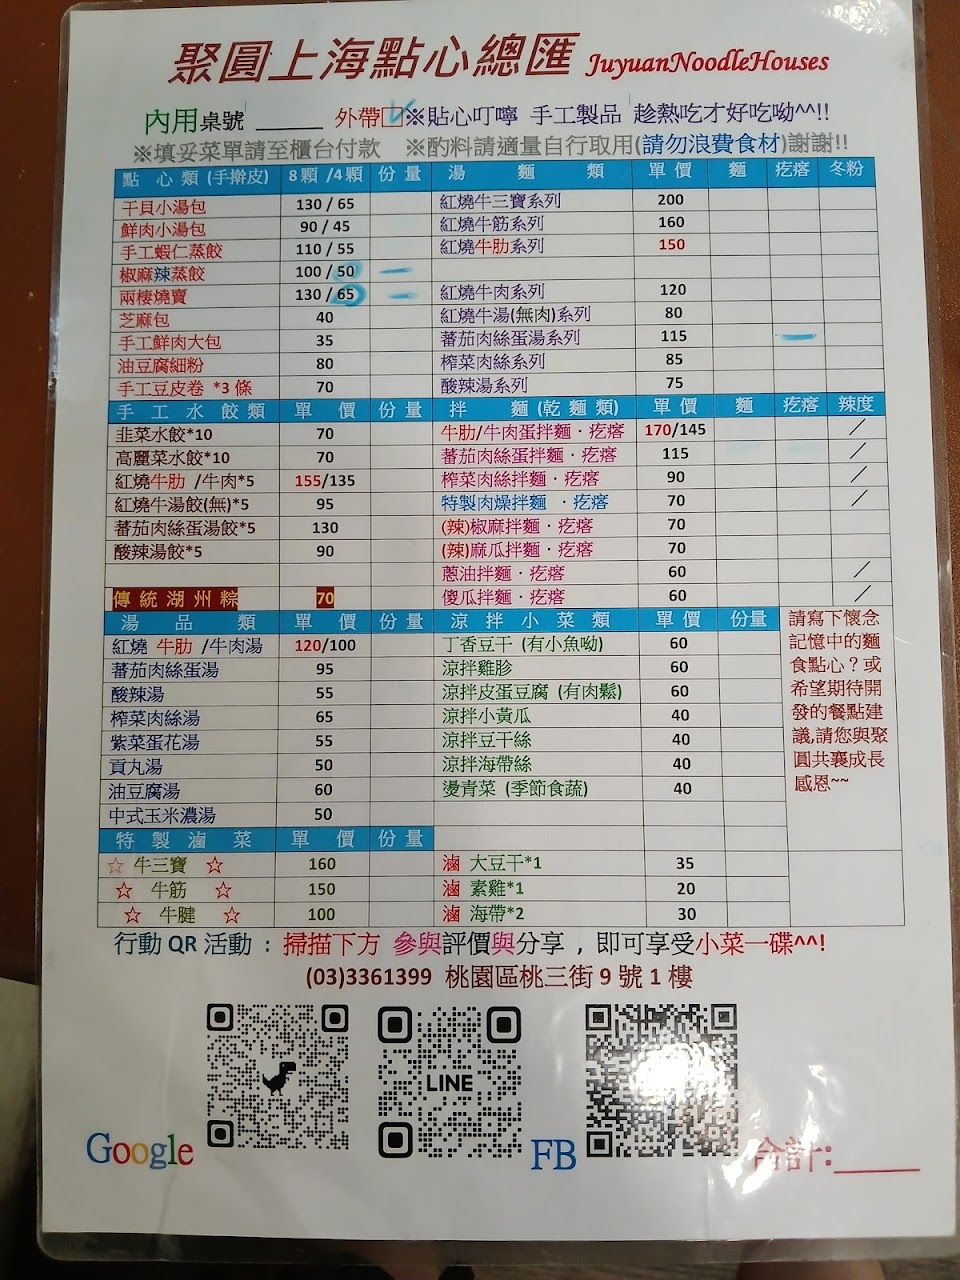 聚圓上海點心總匯 JuyuanNoodleHouses
內用桌號 ______ 外帶□※貼心叮嚀 手工製品 趁熱吃才好吃呦^^!!
※填妥菜單請至櫃台付款 ※酌料請適量自行取用(請勿浪費食材)謝謝!!
點 心 類 (手擀皮) 8顆 /4顆 份 量 湯 麵 類 單 價 麵 疙瘩 冬粉
干貝小湯包 130 / 65 紅燒牛三寶系列 200
鮮肉小湯包 90 / 45 紅燒牛筋系列 160
手工蝦仁蒸餃 110 / 55 紅燒牛肋系列 150
椒麻辣蒸餃 100 / 50 一
兩棲燒賣 130 / 65 一 紅燒牛肉系列 120
芝麻包 40 紅燒牛湯(無肉)系列 80
手工鮮肉大包 35 蕃茄肉絲蛋湯系列 115 一
油豆腐細粉 80 榨菜肉絲系列 85
手工豆皮卷 *3 條 70 酸辣湯系列 75
手 工 水 餃 類 單 價 份 量 拌 麵 (乾 麵 類) 單 價 麵 疙瘩 辣度
韭菜水餃*10 70 牛肋/牛肉蛋拌麵．疙瘩 170/145 ／
高麗菜水餃*10 70 蕃茄肉絲蛋拌麵．疙瘩 115 ／
紅燒牛肋 /牛肉*5 155/135 榨菜肉絲拌麵．疙瘩 90 ／
紅燒牛湯餃(無)*5 95 特製肉燥拌麵 ．疙瘩 70 ／
蕃茄肉絲蛋湯餃*5 130 (辣)椒麻拌麵．疙瘩 70
酸辣湯餃*5 90 (辣)麻瓜拌麵．疙瘩 70
蔥油拌麵．疙瘩 60 ／
傳 統 湖 州 粽 70 傻瓜拌麵．疙瘩 60 ／
湯 品 類 單 價 份 量 涼 拌 小 菜 類 單 價 份量 請寫下懷念
紅燒 牛肋 /牛肉湯 120/100 丁香豆干 (有小魚呦) 60 記憶中的麵
蕃茄肉絲蛋湯 95 涼拌雞胗 60 食點心？或
酸辣湯 55 涼拌皮蛋豆腐 (有肉鬆) 60 希望期待開
榨菜肉絲湯 65 涼拌小黃瓜 40 發的餐點建
紫菜蛋花湯 55 涼拌豆干絲 40 議,請您與聚
貢丸湯 50 涼拌海帶絲 40 圓共襄成長
油豆腐湯 60 燙青菜 (季節食蔬) 40 感恩~~
中式玉米濃湯 50
特 製 滷 菜 單 價 份 量
☆ 牛三寶 ☆ 160 滷 大豆干*1 35
☆ 牛筋 ☆ 150 滷 素雞*1 20
☆ 牛腱 ☆ 100 滷 海帶*2 30
行動 QR 活動 : 掃描下方 參與評價與分享 , 即可享受小菜一碟^^!
(03)3361399 桃園區桃三街 9 號 1 樓
LINE
Google FB 合計:_____